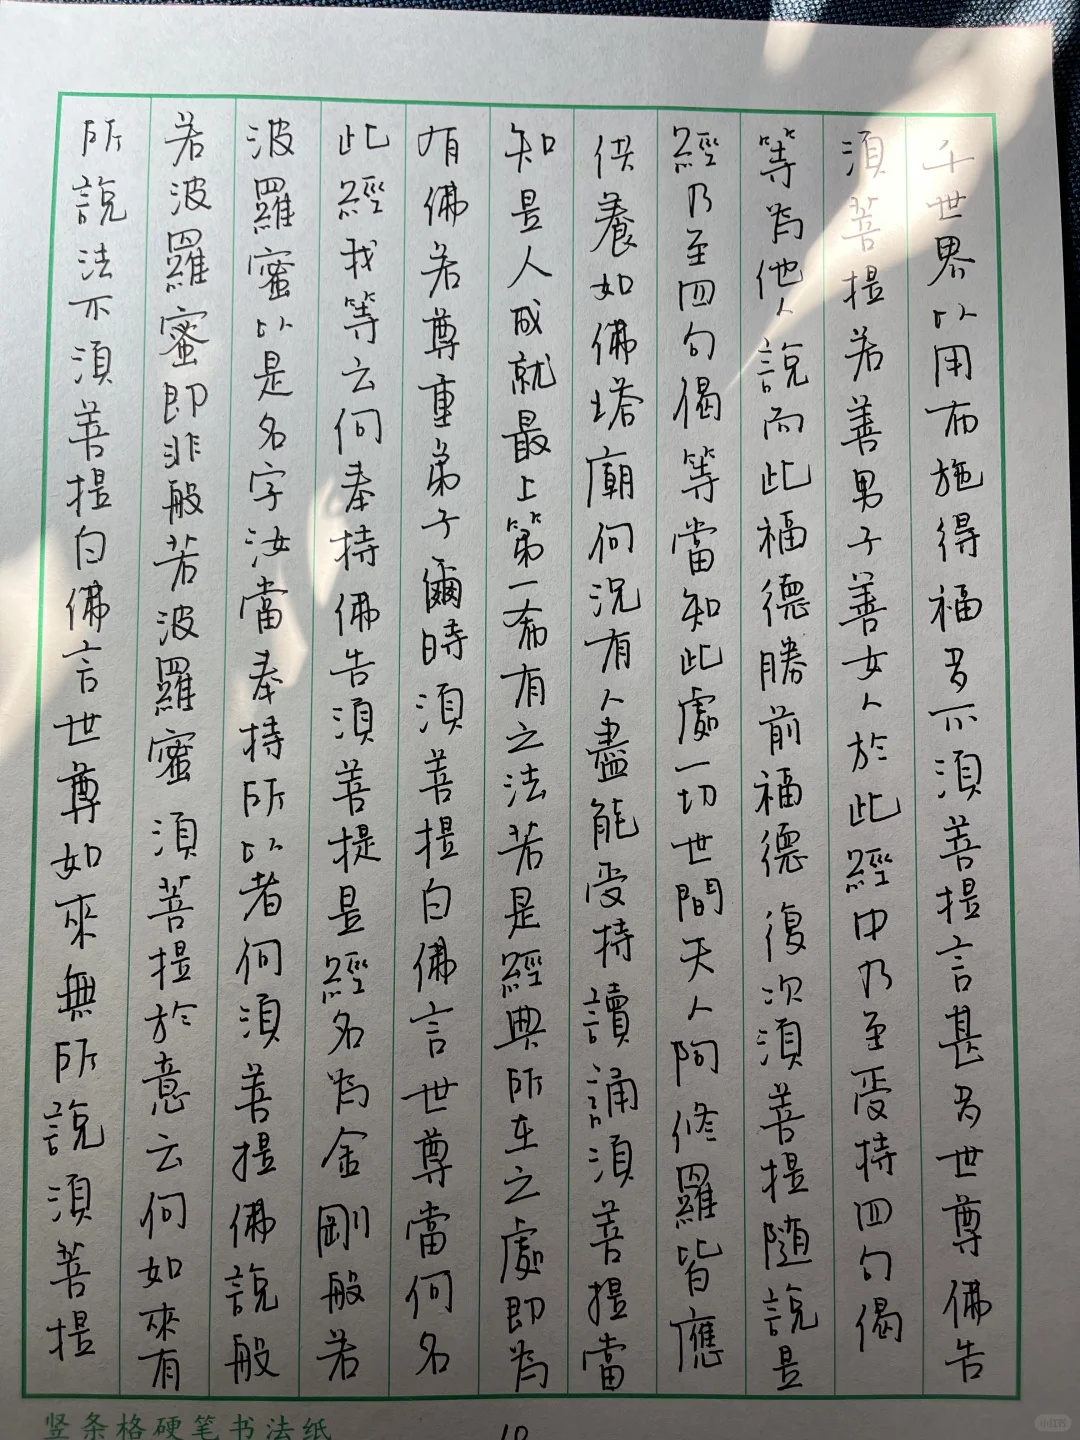 千世界以用布施得福多不須菩提言甚多世尊佛告
須菩提若善男子善女人於此經中乃至受持四句偈
等為他人說而此福德勝前福德復次須菩提隨說是
經乃至四句偈等當知此處一切世間天人阿修羅皆應
供養如佛塔廟何況有人盡能受持讀誦須菩提當
知是人成就最上第一希有之法若是經典所在之處即為
有佛若尊重弟子爾時須菩提白佛言世尊當何名
此經我等云何奉持佛告須菩提是經名為金剛般若
波羅蜜以是名字汝當奉持所以者何須菩提佛說般
若波羅蜜即非般若波羅蜜須菩提於意云何如來有
所說法不須菩提白佛言世尊如來無所說須菩提
竖条格硬笔书法纸
10
小红书